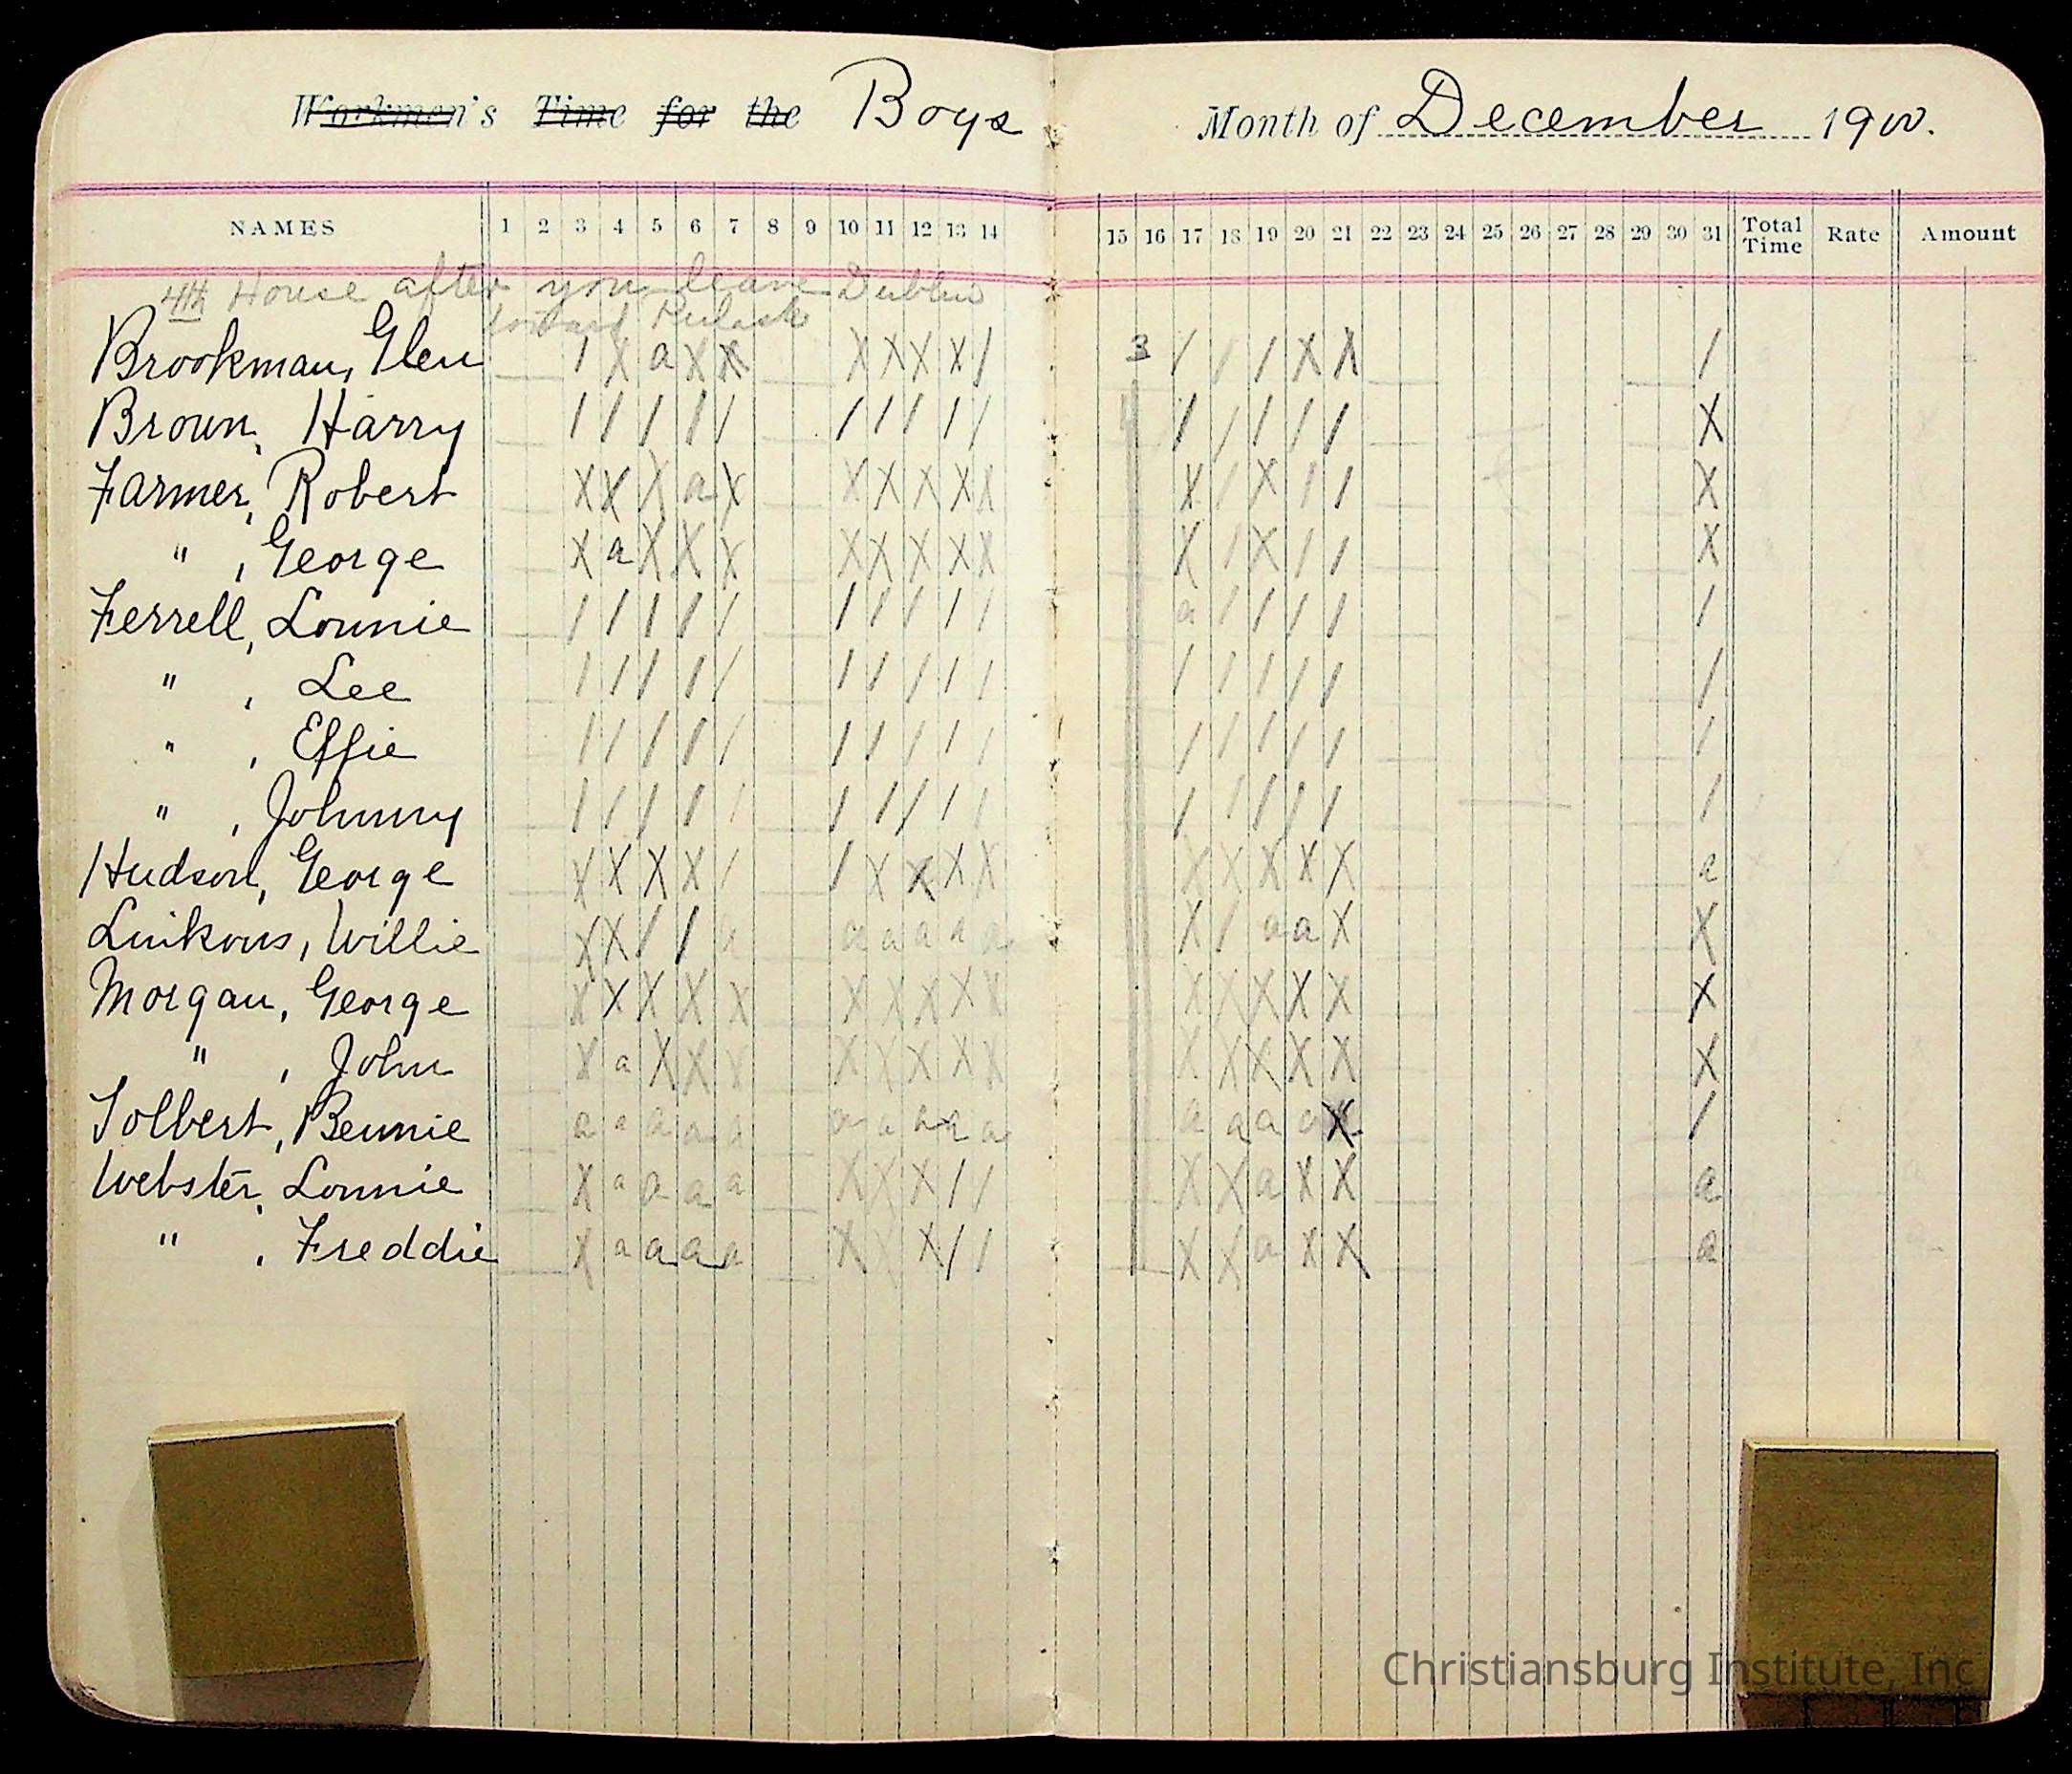 Workmen's Time for the Boys Month of December 1900.
NAMES 1 2 3 4 5 6 7 8 9 10 11 12 13 14 15 16 17 18 19 20 21 22 23 24 25 26 27 28 29 30 31 Total Time Rate Amount
4th House after you leave Dublin
toward Pulaski
Brookman, Glen / X a X X X X X X / 3 / / / X X /
Brown, Harry / / / / / / / / / / / / / / / X
Farmer, Robert X X X a X X X X X X X / X / / X
" , George X a X X X X X X X X X / X / / X
Ferrell, Lonnie / / / / / / / / / / a / / / / /
" , Lee / / / / / / / / / / / / / / / /
" , Effie / / / / / / / / / / / / / / / /
" , Johnny / / / / / / / / / / / / / / / /
Hudson, George X X X X / / X X X X X X X X X a
Linkous, Willie X X / / a a a a a a X / a a X X
Morgan, George X X X X X X X X X X X X X X X X
" , John X a X X X X X X X X X X X X X X
Tolbert, Bennie a a a a a a a a a a a a a a X /
Webster, Lonnie X a a a a X X X / / X X a X X a
" , Freddie X a a a a X X X / / X X a X X a
Christiansburg Institute, Inc